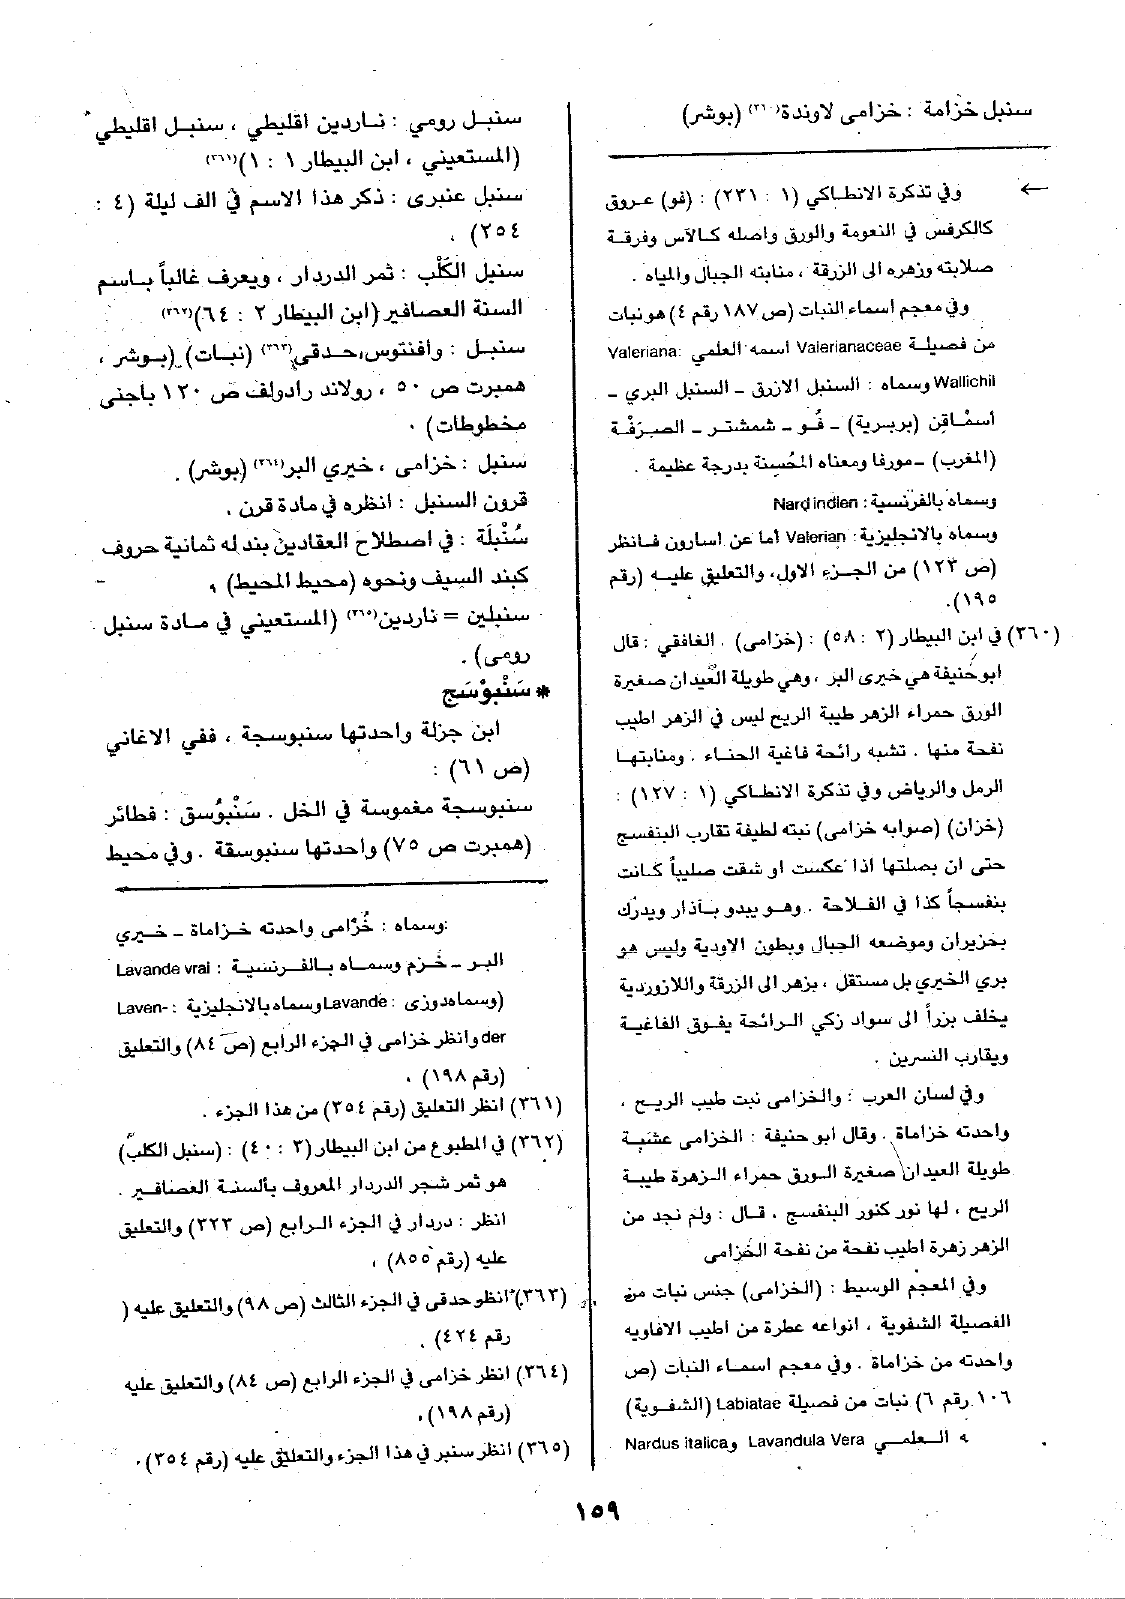 سنبل خزامة : خزامى لاوندة(٣٦٠) (بوشر)
← وفي تذكرة الانطاكي (١ : ٢٣١) : (فو) عروق
كالكرفس في النعومة والورق واصله كالآس وفرقة
صلابته وزهره الى الزرقة ، منابته الجبال والمياه .
وفي معجم أسماء النبات (ص ١٨٧ رقم ٤) هو نبات
من فصيلة Valerianaceae أسمه العلمي Valeriana:
Wallichil وسماه : السنبل الازرق – السنبل البري –
أسمْاقن (بربرية) – فُو – شمشتر – الصرَفْة
(المغرب) – مورفا ومعناه المُحسنة بدرجة عظيمة .
وسماه بالفرنسية : Nard indien
وسماه بالانجليزية : Valerian أما عن اسارون فانظر
(ص ١٢٣) من الجزء الاول، والتعليق عليه (رقم
١٩٥).
(٣٦٠) في ابن البيطار (٢ : ٥٨) : (خزامى) . الغافقي : قال
ابو حنيفة هي خيرى البر ، وهي طويلة العيدان صغيرة
الورق حمراء الزهر طيبة الريح ليس في الزهر اطيب
نفحة منها . تشبه رائحة فاغية الحناء . ومنابتها
الرمل والرياض وفي تذكرة الانطاكي (١ : ١٢٧) :
(خزان) (صوابه خزامى) نبته لطيفة تقارب البنفسج
حتى ان بصلتها اذا عكست او شقت صليباً كانت
بنفسجاً كذا في الفلاحة . وهو يبدو بآذار ويدرك
بحزيران وموضعه الجبال وبطون الاودية وليس هو
بري الخيري بل مستقل ، يزهر الى الزرقة واللازوردية
يخلف بزراً الى سواد زكي الرائحة يفوق الفاغية
ويقارب النسرين .
وفي لسان العرب : والخزامى نبت طيب الريح ،
واحدته خزاماة . وقال أبو حنيفة : الخزامى عشبة
طويلة العيدان صغيرة الورق حمراء الزهرة طيبة
الريح ، لها نور كنور البنفسج . قال : ولم نجد من
الزهر زهرة اطيب نفحة من نفحة الخزامى
وفي المعجم الوسيط : (الخزامى) جنس نبات من
الفصيلة الشفوية ، انواعه عطرة من اطيب الافاويه
واحدته من خزاماة . وفي معجم اسماء النبات (ص
١٠٦ رقم ٦) نبات من فصيلة Labiatae (الشفوية)
ه العلمي Lavandula Vera وNardus italica
سنبل رومي : ناردين اقليطي ، سنبل اقليطي
(المستعيني ، ابن البيطار ١ : ١)(٣٦١)
سنبل عنبرى : ذكر هذا الاسم في الف ليلة (٤ :
٢٥٤) .
سنبل الكَلْب : ثمر الدردار ، ويعرف غالباً باسم
السنة العصافير (ابن البيطار ٢ : ٦٤)(٣٦٢)
سنبل : وأفنتوس، حدقي(٣٦٣) (نبات) (بوشر ،
همبرت ص ٥٠ ، رولاند رادولف ص ١٢٠ بأجنى
مخطوطات) .
سنبل : خزامى ، خيري البر(٣٦٤) (بوشر) .
قرون السنبل : انظره في مادة قرن .
سُنْبلَة : في اصطلاح العقادين بند له ثمانية حروف
كبند السيف ونحوه (محيط المحيط) .
سنبلين = ناردين(٣٦٥) (المستعيني في مادة سنبل
رومى) .
* سَنْبُوْسَج
ابن جزلة واحدتها سنبوسجة ، ففي الاغاني
(ص ٦١) :
سنبوسجة مغموسة في الخل . سَنْبُوسق : فطائر
(همبرت ص ٧٥) واحدتها سنبوسقة . وفي محيط
وسماه : خُزامى واحدته خزاماة – خيري
البر – خُزم وسماه بالفرنسية : Lavande vrai
(وسماه دوزى : Lavande وسماه بالانجليزية : Laven-
der وانظر خزامى في الجزء الرابع (ص ٨٤) والتعليق
(رقم ١٩٨) .
(٣٦١) انظر التعليق (رقم ٣٥٤) من هذا الجزء .
(٣٦٢) في المطبوع من ابن البيطار (٣ : ٤٠) : (سنبل الكلب)
هو ثمر شجر الدردار المعروف بألسنة العصافير .
انظر : دردار في الجزء الرابع (ص ٣٢٣) والتعليق
عليه (رقم ٨٥٥) .
(٣٦٣) انظر حدقى في الجزء الثالث (ص ٩٨) والتعليق عليه (
رقم ٤٢٤) .
(٣٦٤) انظر خزامى في الجزء الرابع (ص ٨٤) والتعليق عليه
(رقم ١٩٨).
(٣٦٥) انظر سنبر في هذا الجزء والتعليق عليه (رقم ٣٥٤) .
١٥٩